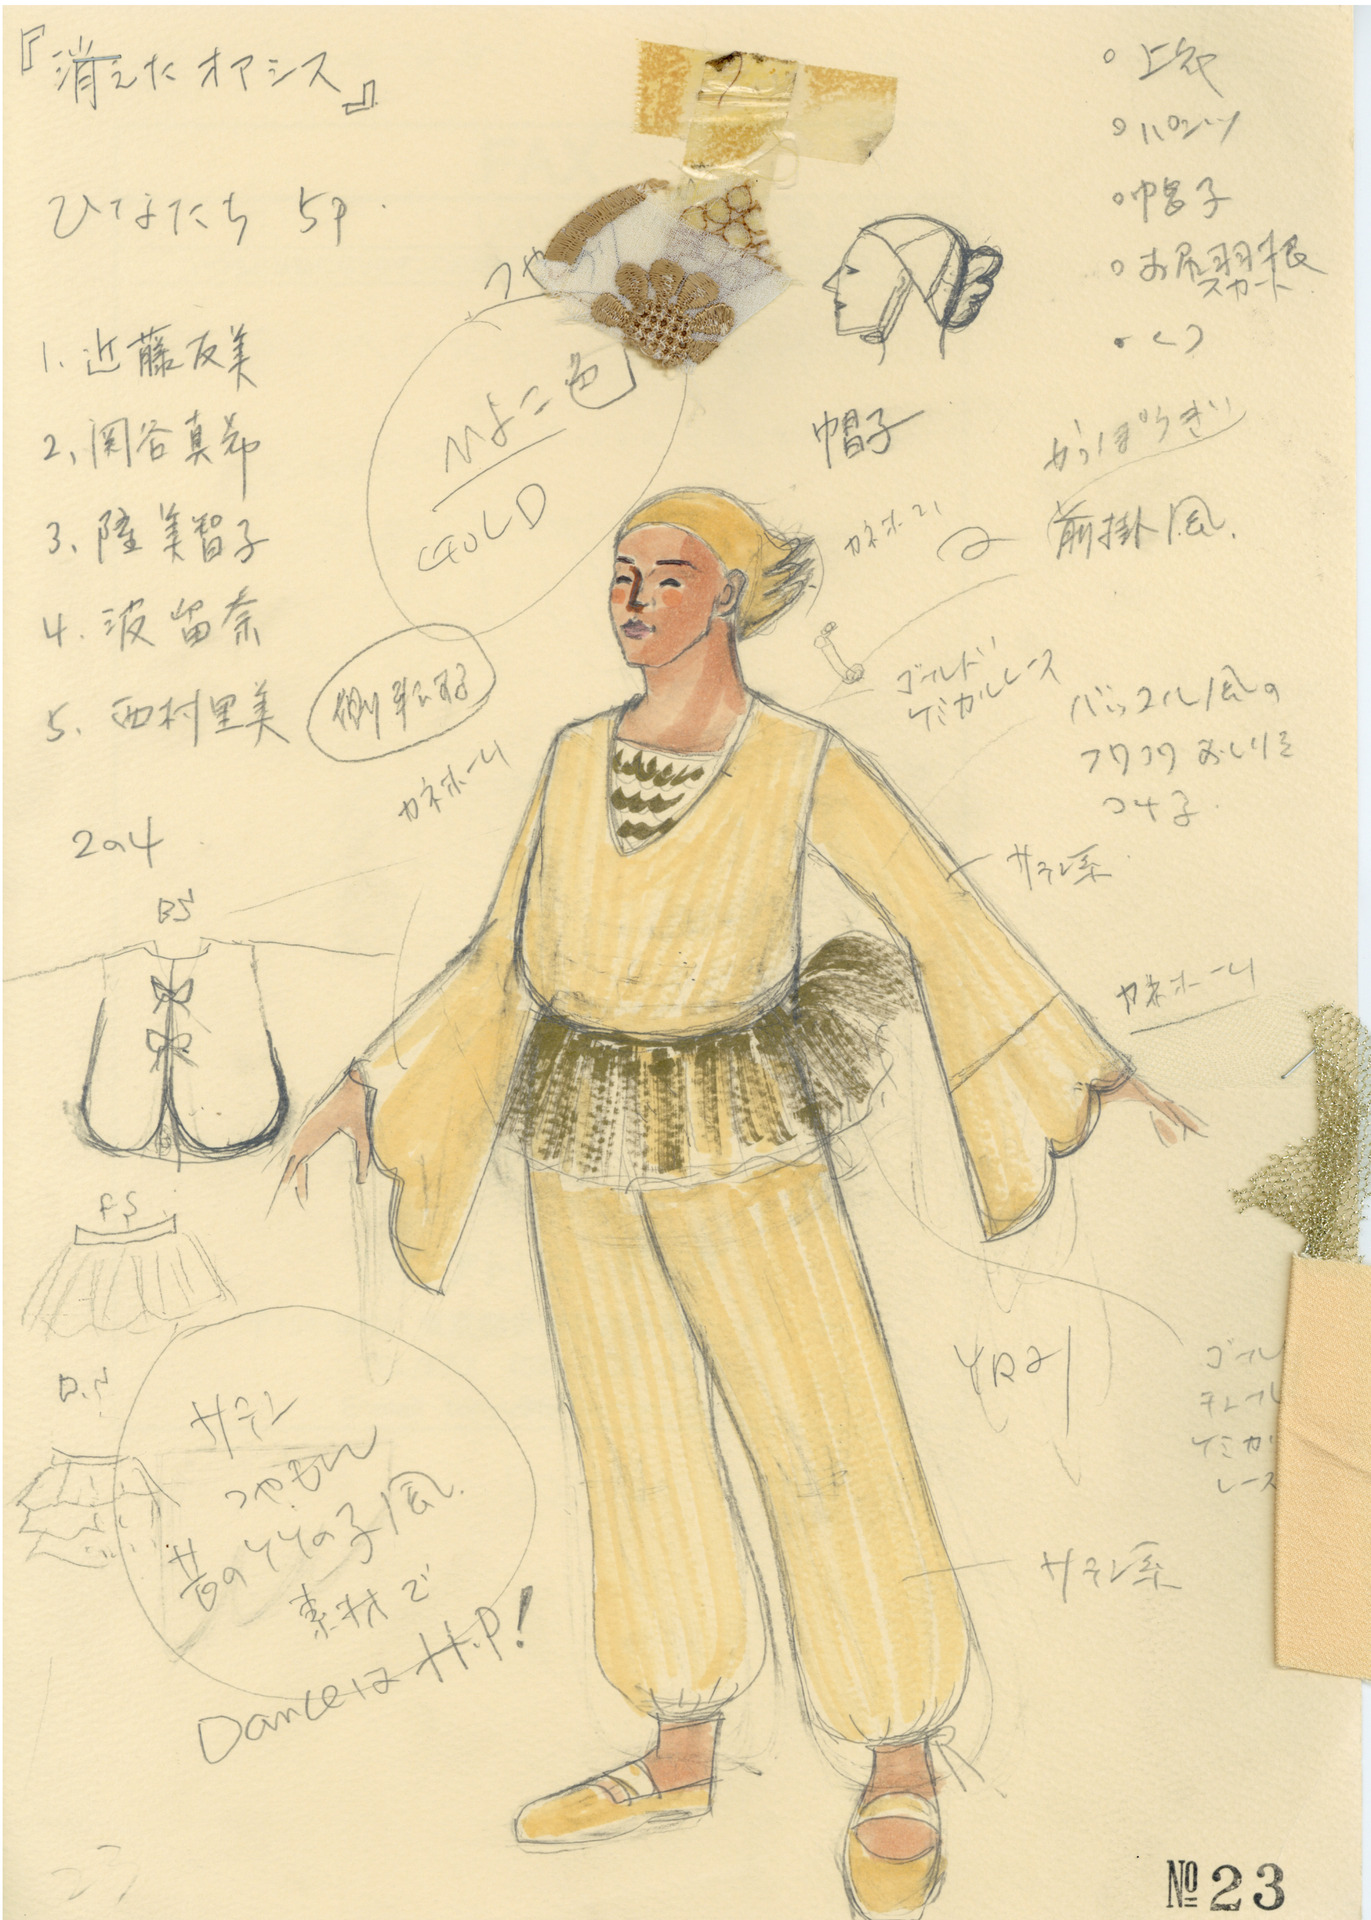 『消えたオアシス』
ひなたち 5P
1. 近藤友美
2. 関谷真希
3. 陸 美智子
4. 波留奈
5. 西村里美
側転する
カネホール
2の4
BS
FS
B.S
サテン
つやもん
昔のヤヤの子風
素材で
DanceはH.P!
つや
二色
GOLD
帽子
カネホール
ゴールド
ケミカルレース
○上衣
○パンツ
○帽子
○お尻羽根
スカート
•くつ
かっぽうぎ
前掛風.
バッスル風の
フワフワおしりを
つける.
サテン系
カネホール
YR21
ゴール
チュール
ケミカ
レース
サテン系
23
№23